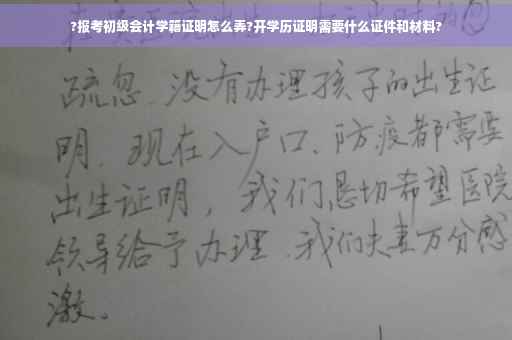 ?报考初级会计学籍证明怎么弄?开学历证明需要什么证件和材料?
疏忽、没有办理孩子的出生证
明. 现在入户口、防疫都需要
出生证明，我们恳切希望医院
领导给予办理、我们夫妻万分感
激。